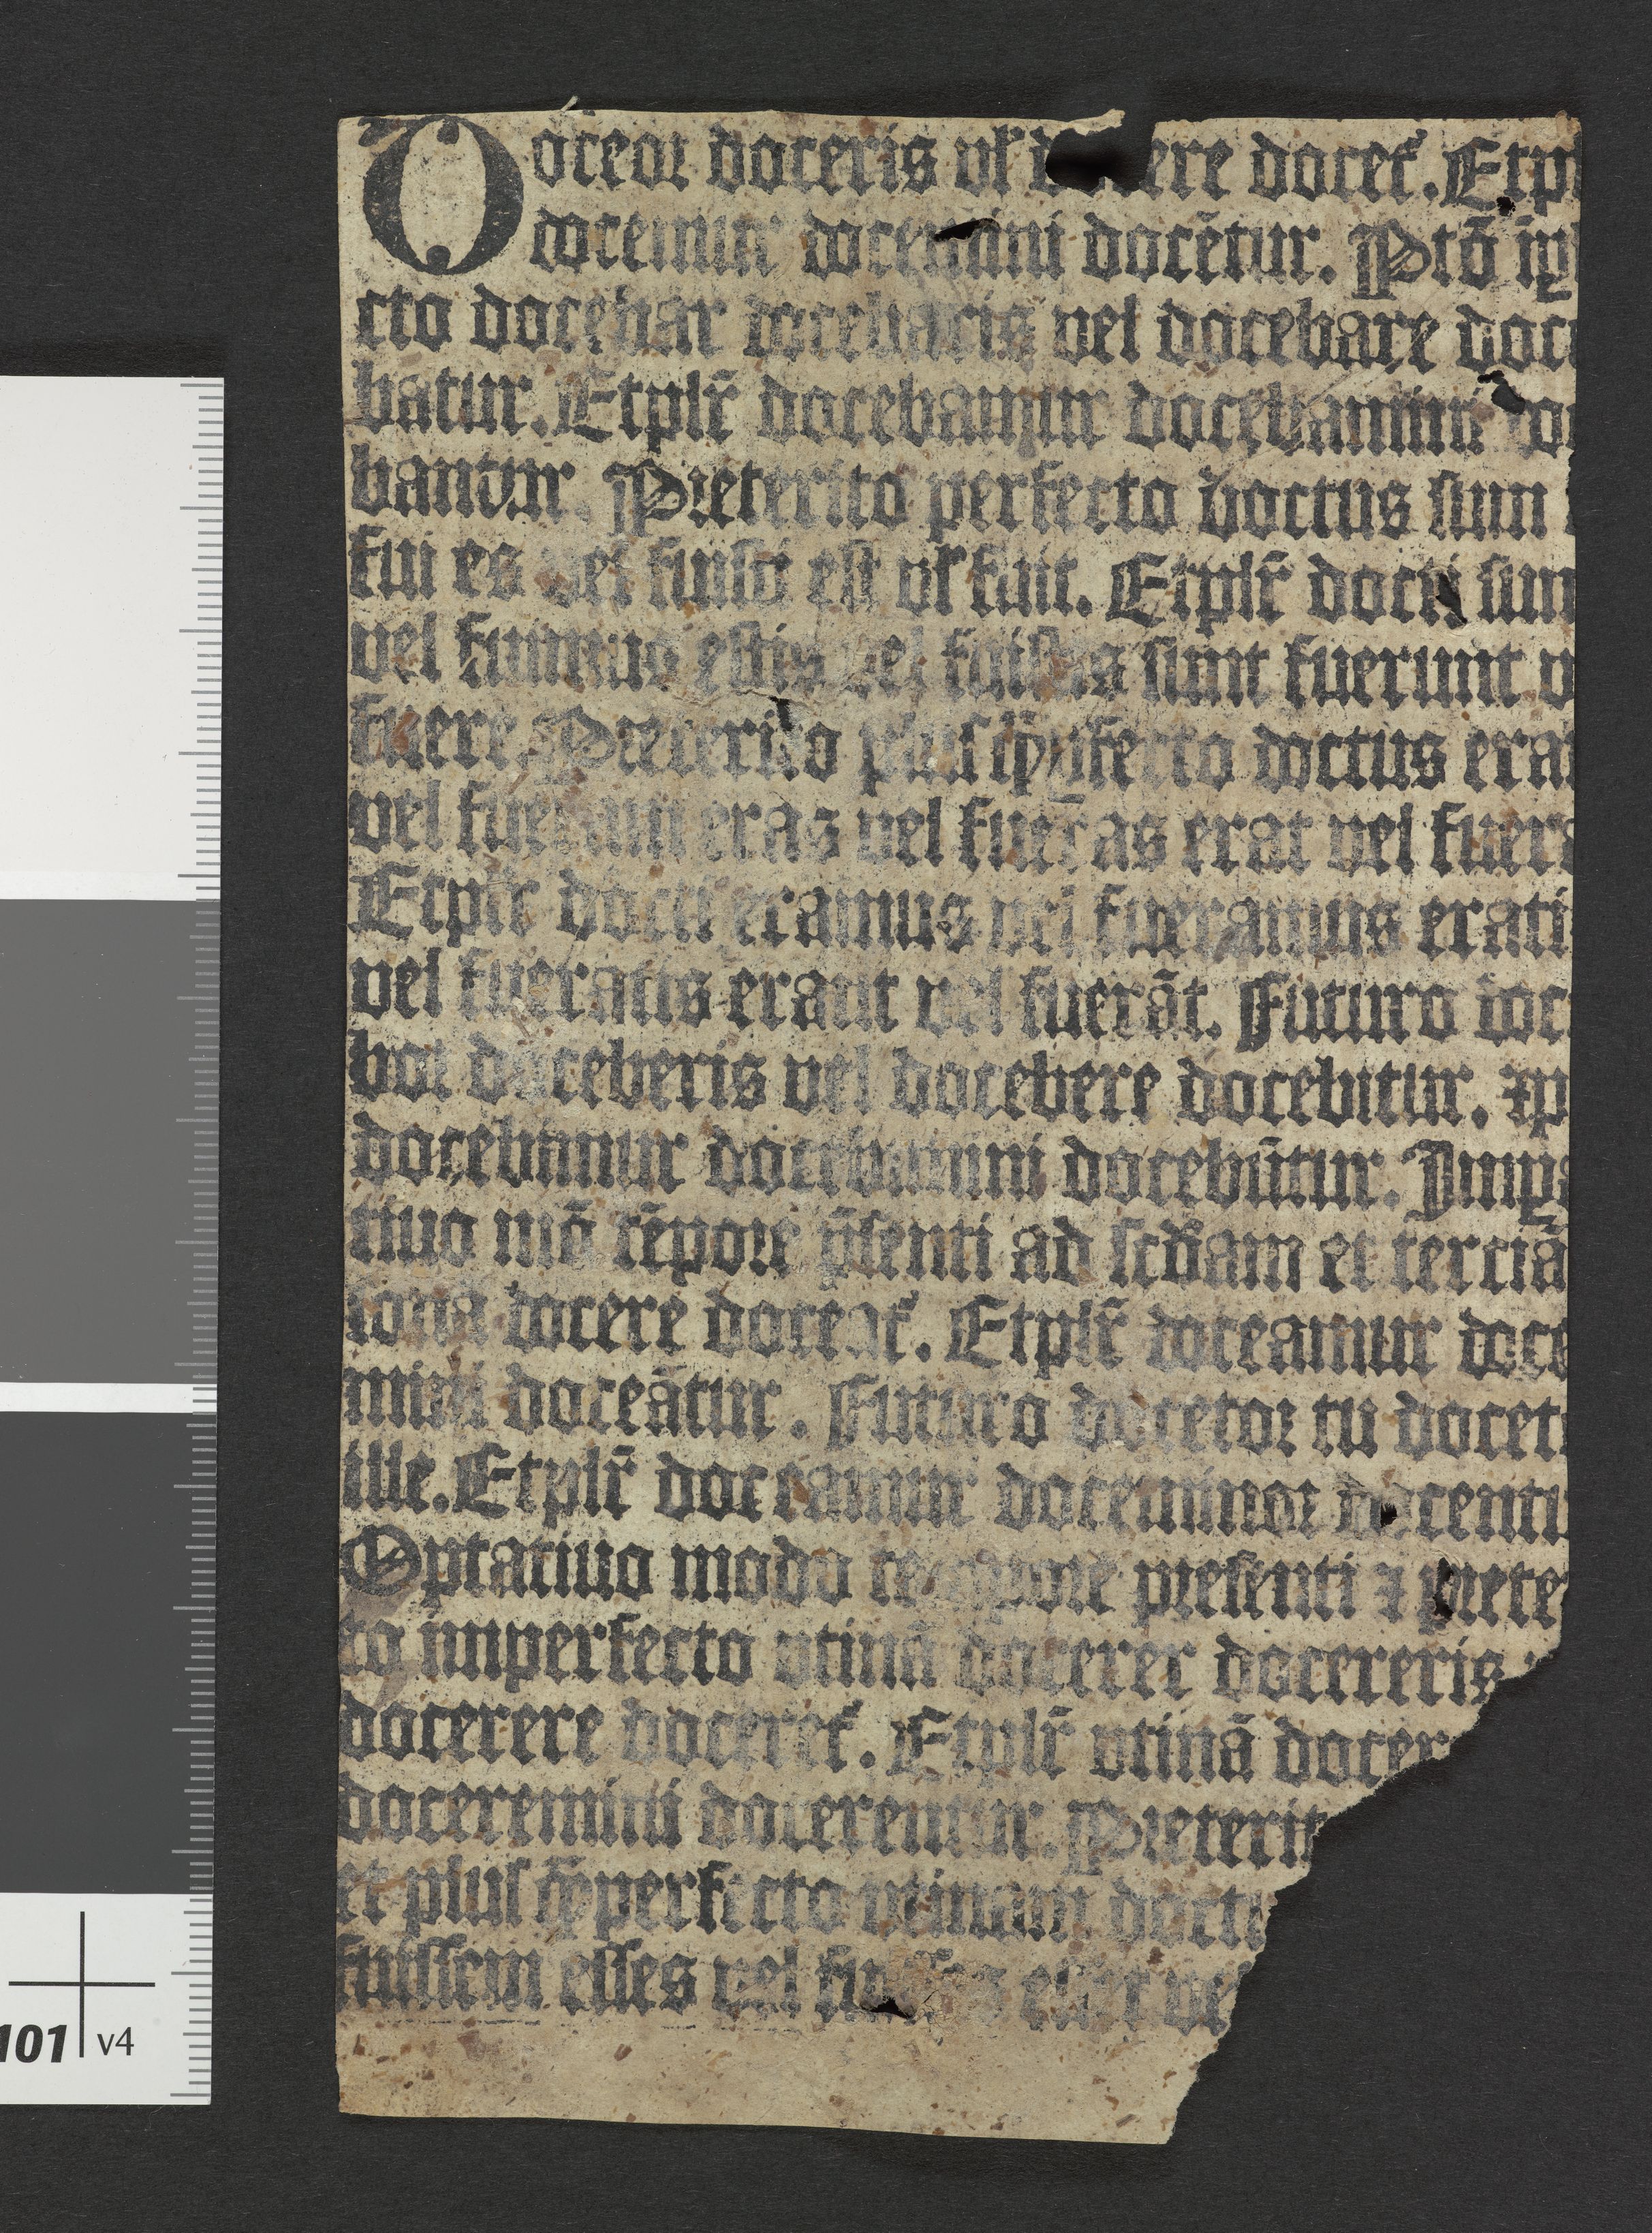 Doceor doceris vl' docere docet'. Etpl
docemur docemini docētur. Ptō imp
cto docebar docebaris vel docebare doce
batur. Etplr̄ docebamur docebamini do
bantur. Preterito perfecto doctus sum
fui es vel fuisti est vl' fuit. Etplr̄ docti sum
vel fuimus estis vel fuistis sunt fuerunt v
fuere Preterito plusq̄ꝑfecto doctus era
vel fueram eras vel fueras erat vel fuera
Etplr̄ docti eramus vel fueramus erati
vel fueratis erant vel fuerāt. Futuro doc
bor doceberis vel docebere docebitur. ⁊p
docebimur docebimini docebūtur. Impa
tiuo mō tēpore p̄senti ad scd̄am et terciā
sonā docere doceat'. Etplr̄ doceamur doce
mini doceātur. Futuro docetor tu doceto
ille. Etplr̄ doceamur doceminor docento
Optatiuo modo tempore presenti ⁊ prete
to imperfecto vtinā docerer docereris
docerere doceret'. Etplr̄ vtinā docer
doceremini docerentur. Preterit
et plusq̄perfecto vtinam doct
fuissem esses vel fuisses esset vel
101 v4